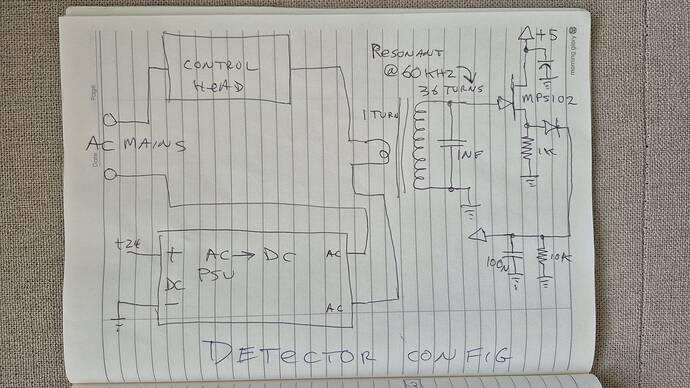 Page
Date
Anupi Dainandini
CONTROL
HEAD
AC MAINS
RESONANT
@ 60KHZ
36 TURNS
1 TURN
1NF
+5
MPS102
1K
100n
10K
+24
+
DC
-
AC → DC
PSU
AC
AC
DETECTOR CONFIG